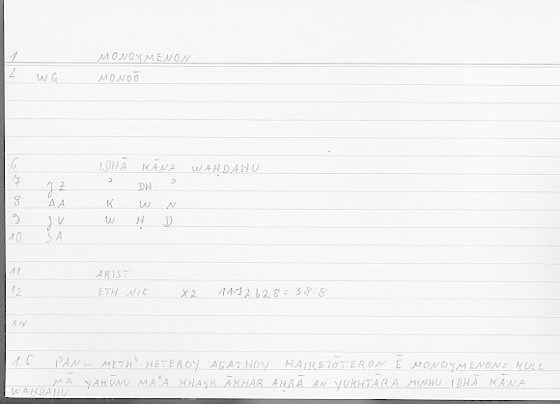 1 MONOYMENON
2 WG MONOŌ
6 IDHĀ KĀNA WAḤDAHU
7 ʾ DH ʾ
8 AA K W N
9 W Ḥ D
10
11 ARIST
12 ETH NIC X2 11-12628=38.8
14
16 PAN_ METHʾ HETEROY AGATHOY HAIRETŌTERON Ē MONOYMENON= KULL
MĀ YAKŪNU MAʿA KHAYR ĀKHAR AḤRĀ AN YUKHTĀRA MINHU IDHĀ KĀNA
WAḤDAHU